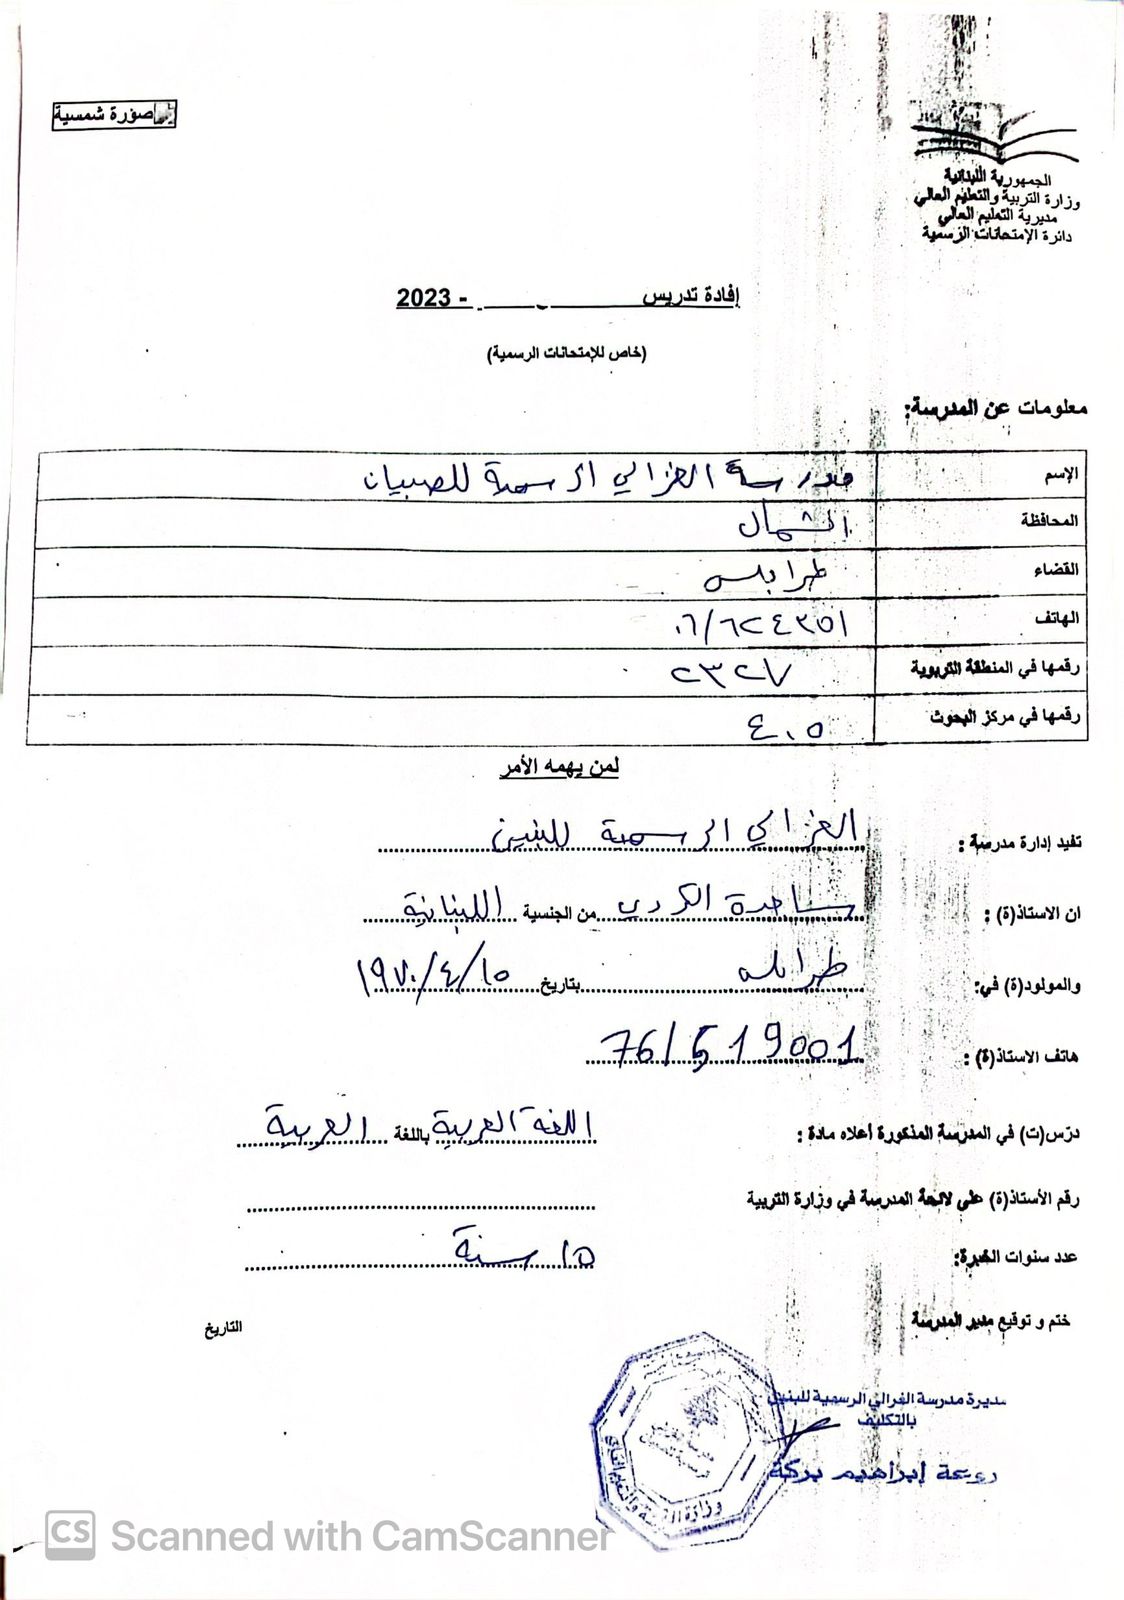 صورة شمسية
الجمهورية اللبنانية
وزارة التربية والتعليم العالي
مديرية التعليم العالي
دائرة الإمتحانات الرسمية
إفادة تدريس - 2023
(خاص للإمتحانات الرسمية)
معلومات عن المدرسة:
الإسم مدرسة الغزالي الرسمية للصبيان
المحافظة الشمال
القضاء طرابلس
الهاتف ٠٦/٦٢٤٣٥١
رقمها في المنطقة التربوية ٢٣٢٧
رقمها في مركز البحوث ٤٠٥
لمن يهمه الأمر
تفيد إدارة مدرسة : الغزالي الرسمية للبنين
ان الاستاذ(ة) : ساجدة الكردي من الجنسية اللبنانية
والمولود(ة) في: طرابلس بتاريخ ١٩٧٠/٤/١٥
هاتف الاستاذ(ة) : 76/519001
درّس(ت) في المدرسة المذكورة أعلاه مادة : اللغة العربية باللغة العربية
رقم الأستاذ(ة) على لائحة المدرسة في وزارة التربية
عدد سنوات الخبرة: ١٥ سنة
ختم و توقيع مدير المدرسة
التاريخ
مديرة مدرسة الغزالي الرسمية للبنين
بالتكليف
إبراهيم بركة
وزارة التربية والتعليم العالي
CS Scanned with CamScanner